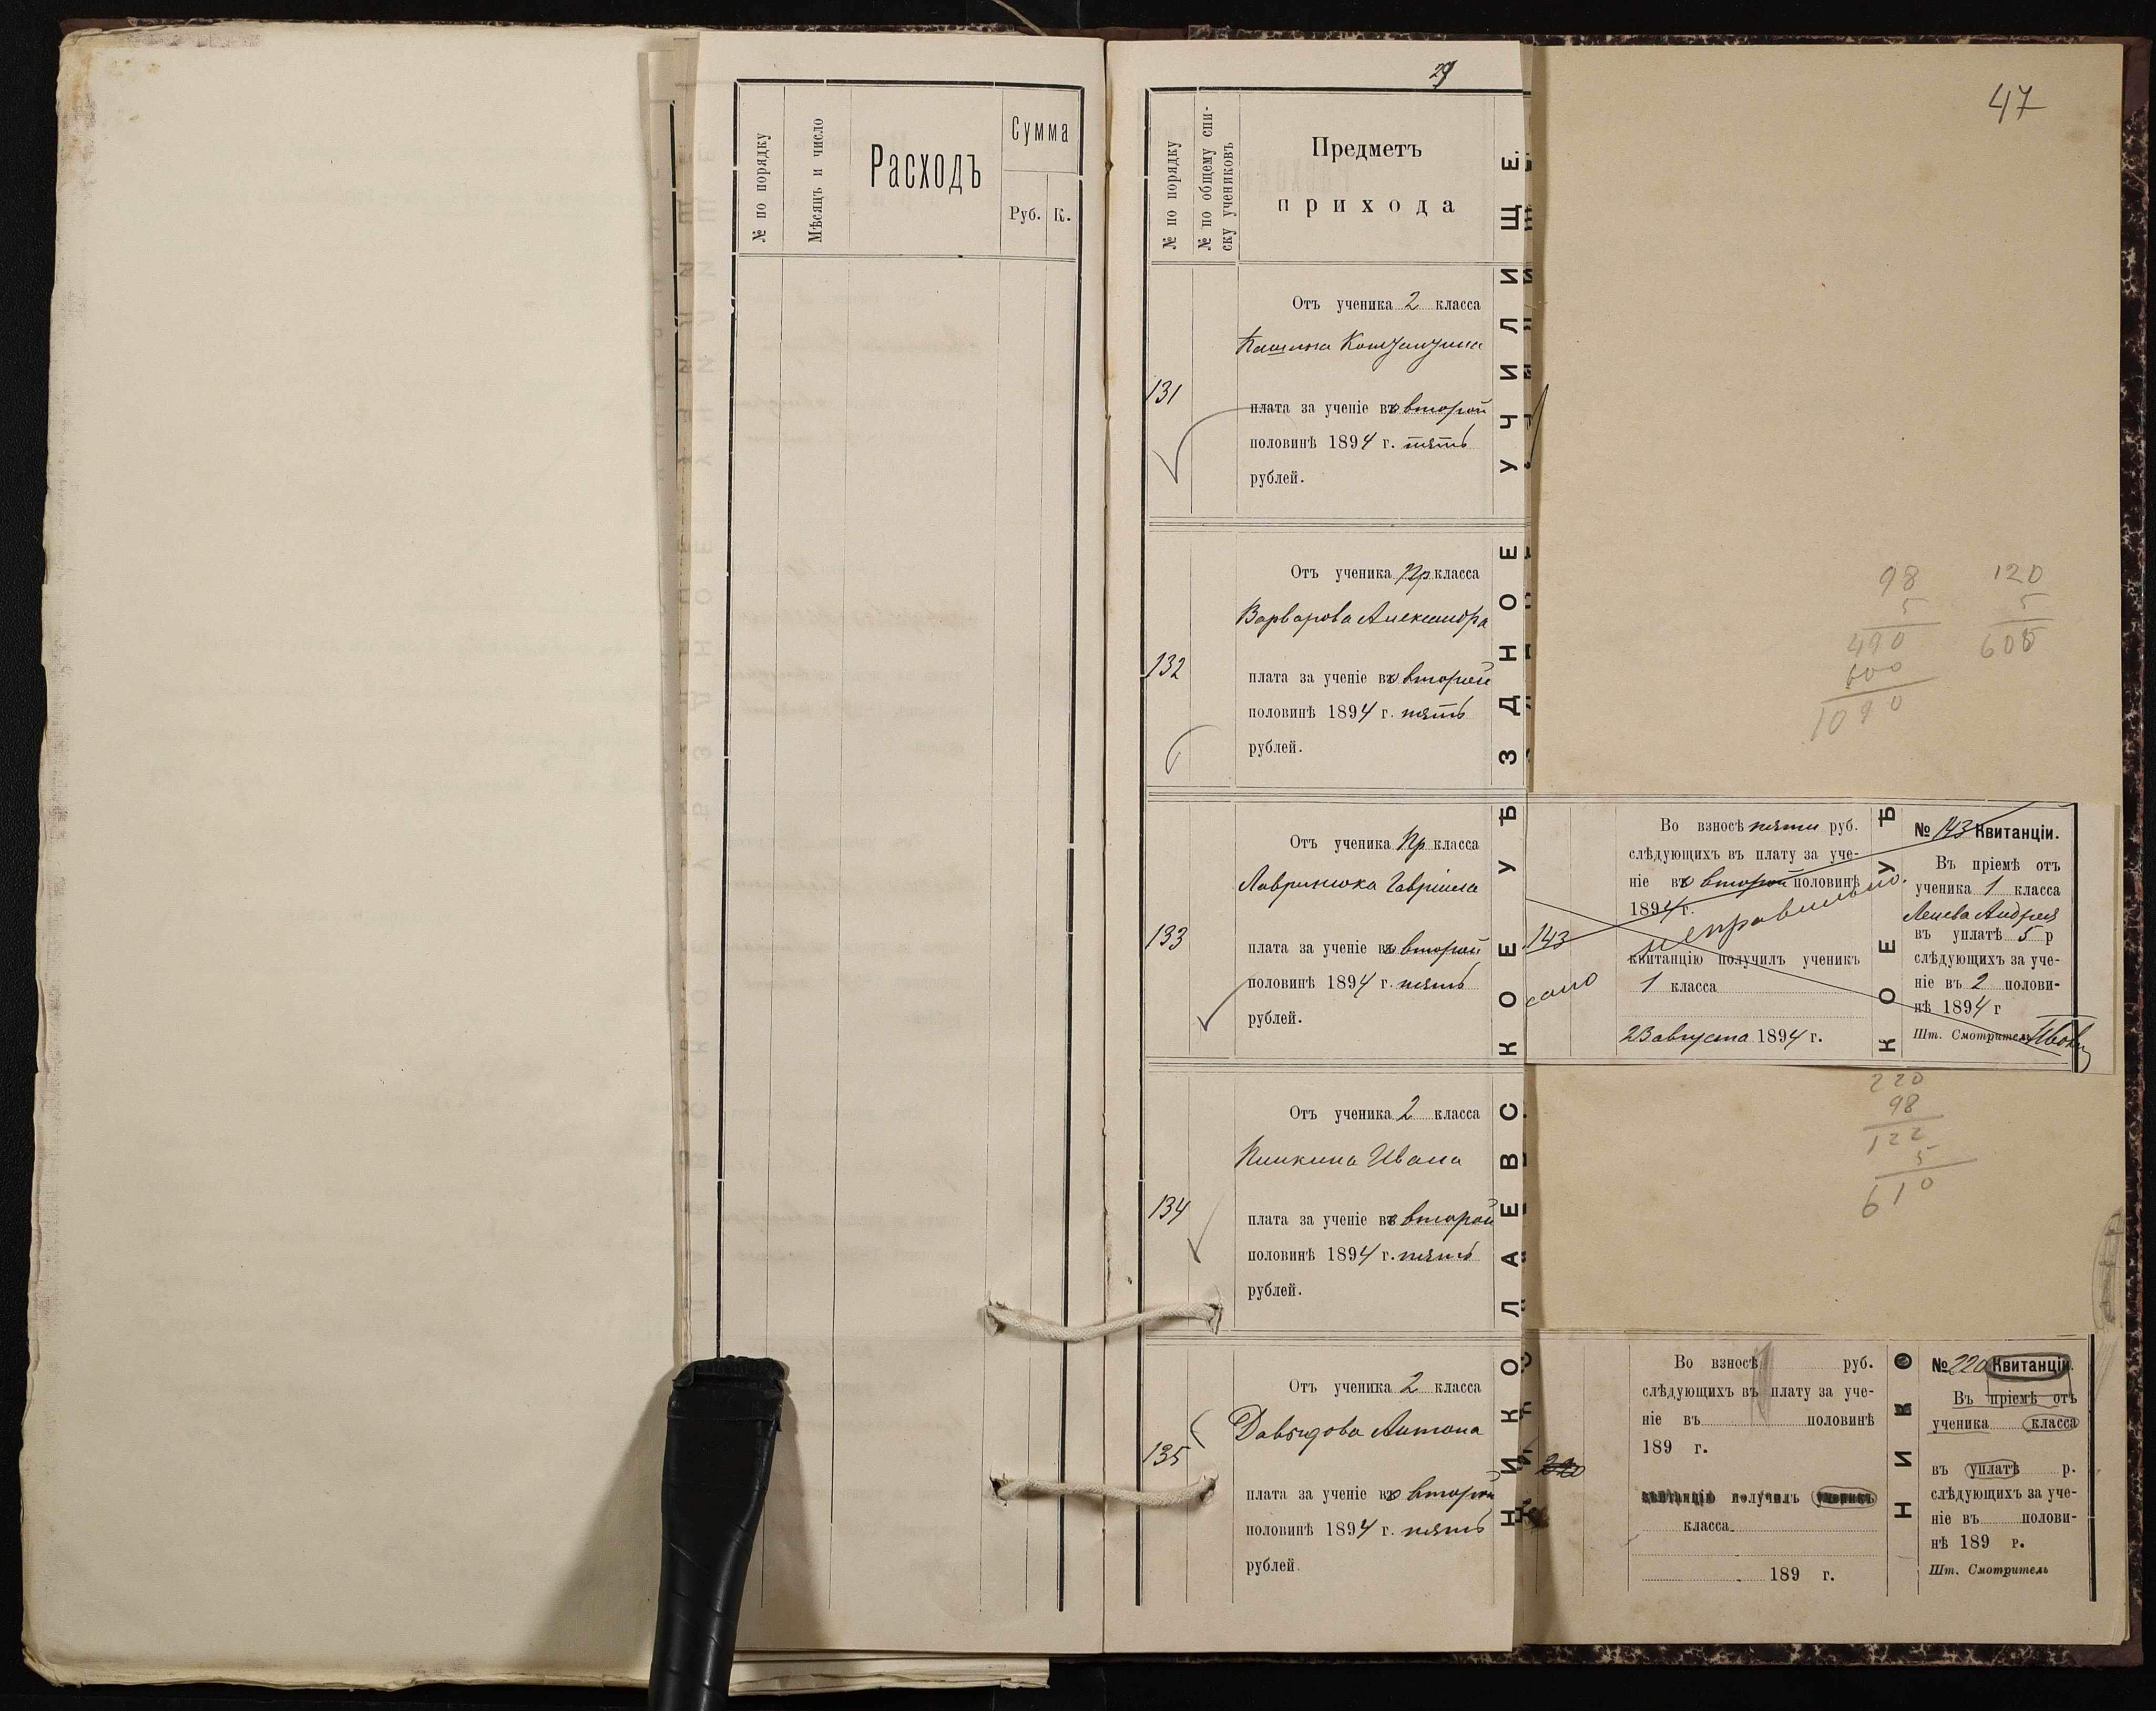 № по порядку
Мѣсяцъ и число
Расходъ
Сумма
Руб.
К.
29
№ по порядку
№ по общему спи-
ску учениковъ
Предметъ
прихода
131
Отъ ученика 2 класса
Кашина Константина
плата за ученіе въ второй
половинѣ 1894 г. пять
рублей.
132
Отъ ученика Пр класса
Варварова Александра
плата за ученіе въ второй
половинѣ 1894 г. пять
рублей.
133
Отъ ученика Пр класса
Лавринюка Гавріила
плата за ученіе въ второй
половинѣ 1894 г. пять
рублей.
134
Отъ ученика 2 класса
Пишкина Ивана
плата за ученіе въ второй
половинѣ 1894 г. пять
рублей.
135
Отъ ученика 2 класса
Давыдова Антона
плата за ученіе въ второй
половинѣ 1894 г. пять
рублей.
НИКОЛАЕВСКОЕ УѢЗДНОЕ УЧИЛИЩЕ.
47
98
5
490
600
1090
120
5
600
143
Во взносѣ пяти руб.
слѣдующихъ въ плату за уче-
ніе въ второй половинѣ
1894 г.
неправильно.
квитанцію получилъ ученикъ
1 класса
23 августа 1894 г.
КОЕ УѢ
№ 143 Квитанціи.
Въ пріемѣ отъ
ученика 1 класса
Андрея
въ уплатѣ 5 р
слѣдующихъ за уче-
ніе въ 2 полови-
нѣ 1894 г
Шт. Смотритель
220
98
122
5
610
220
Во взносѣ руб.
слѣдующихъ въ плату за уче-
ніе въ половинѣ
189 г.
квитанцію получилъ ученикъ
класса
189 г.
НИКО
№ 220 Квитанціи.
Въ пріемѣ отъ
ученика класса
въ уплатѣ р.
слѣдующихъ за уче-
ніе въ полови-
нѣ 189 г.
Шт. Смотритель